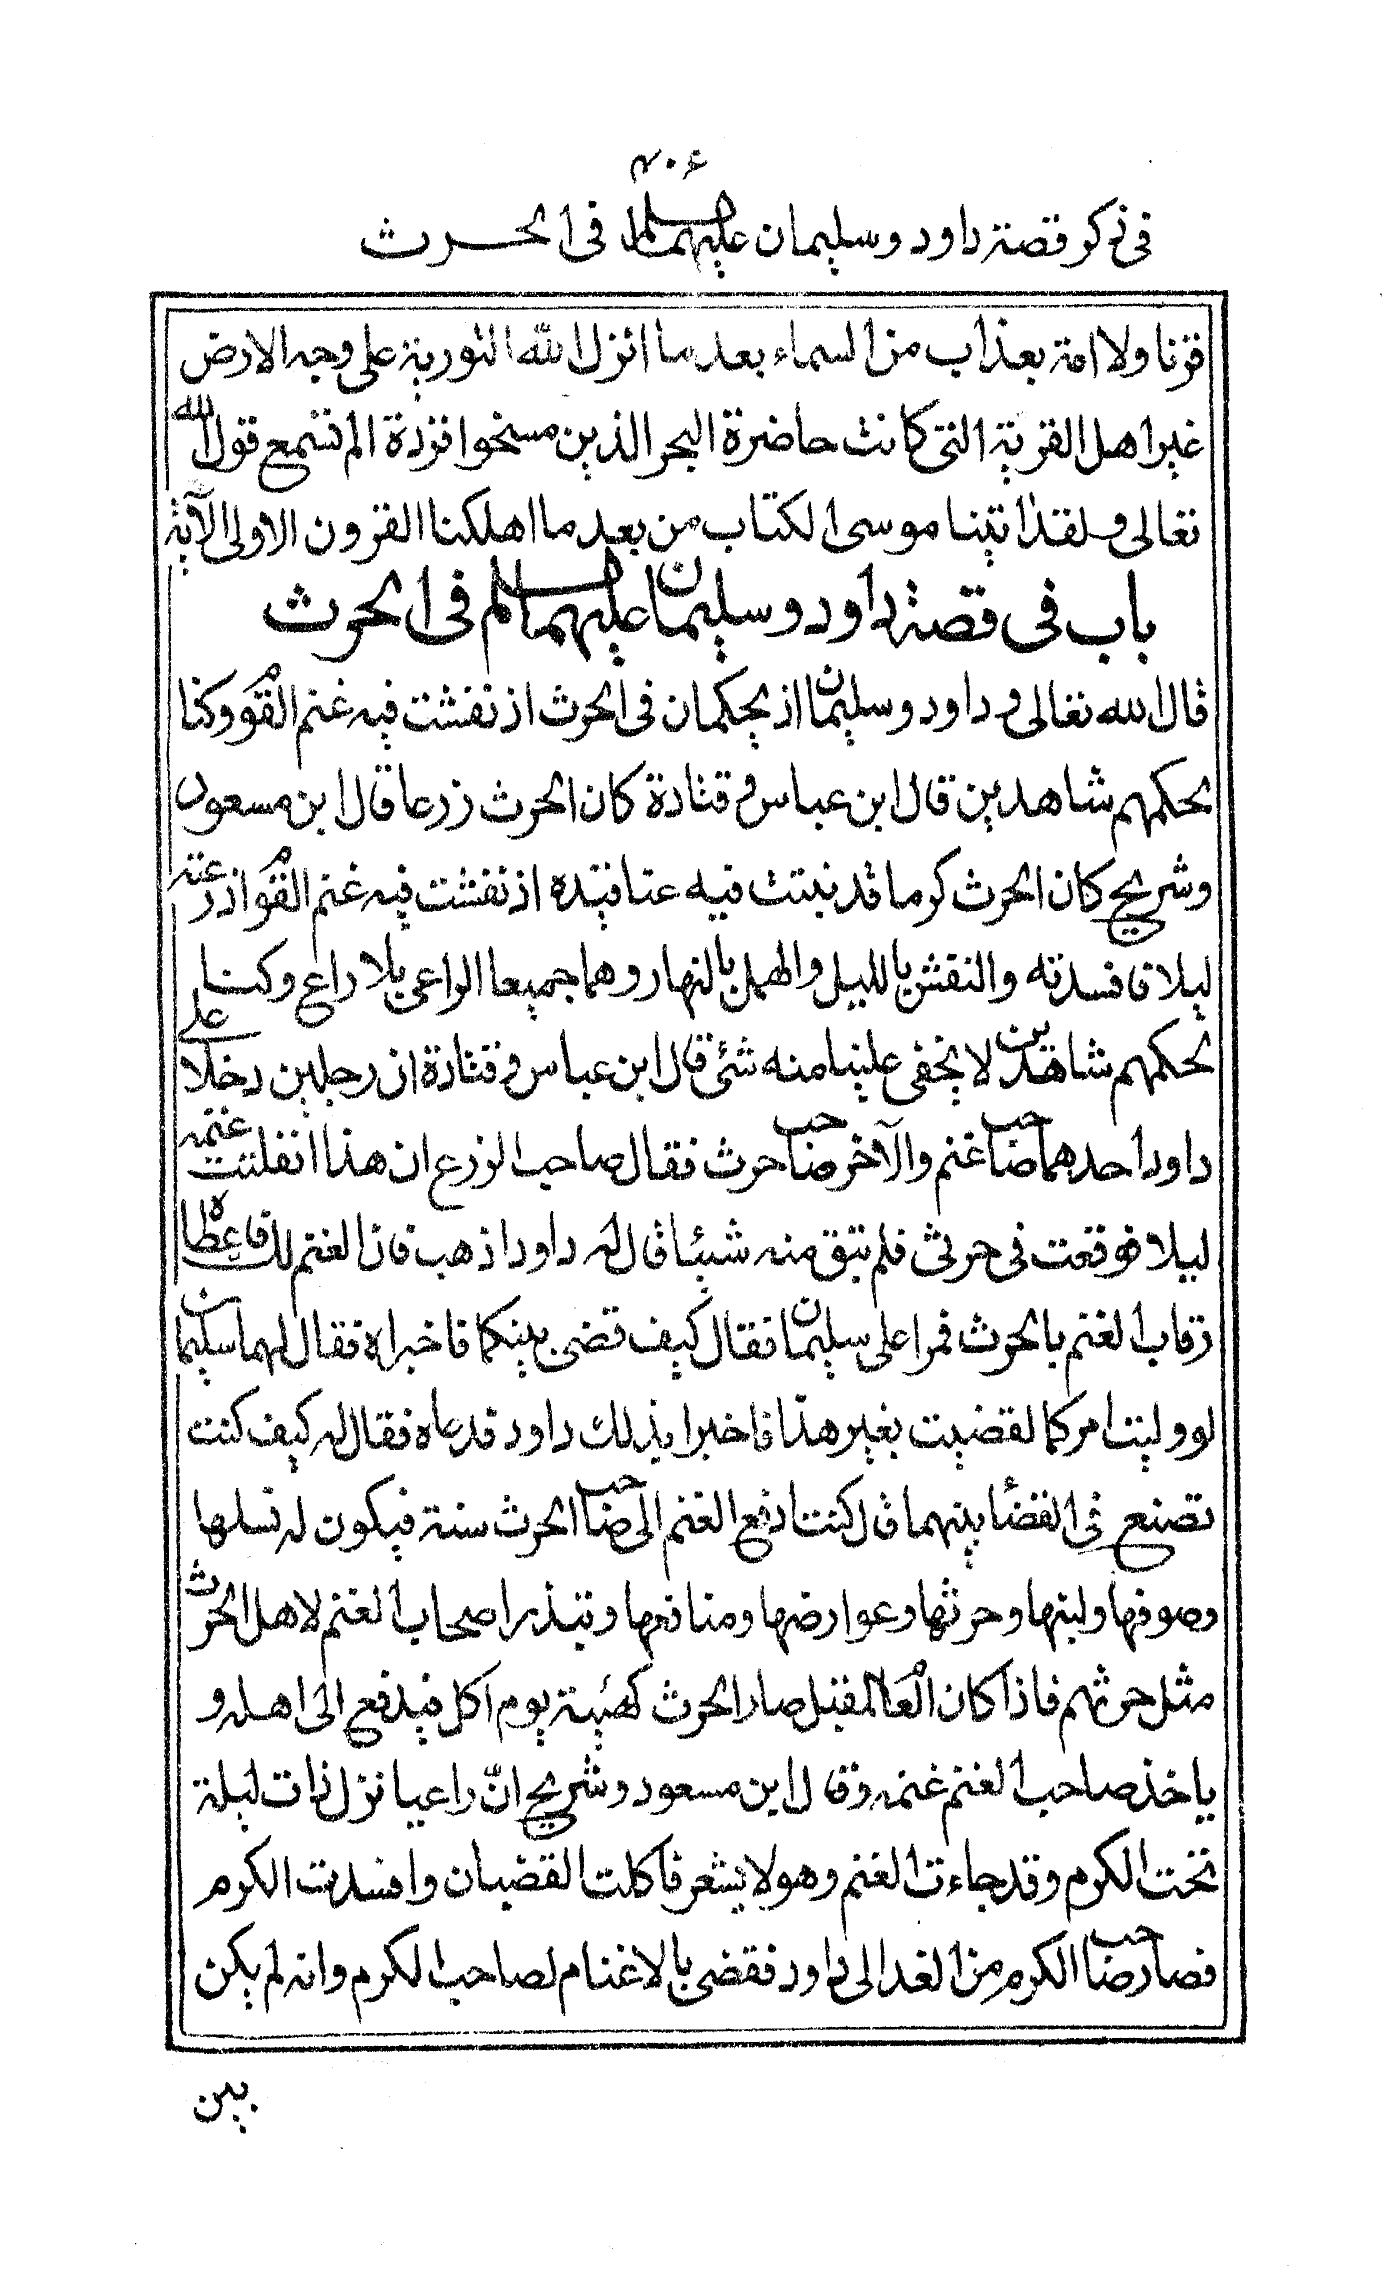 ٤٠٦
فى ذكر قصة داود وسليمان عليهما السلام فى الحرث
قرنا ولا امة بعذاب من السماء بعد ما انزل الله التورية على وجه الارض
غير اهل القرية التى كانت حاضرة البحر الذين مسخوا قردة الم تسمع قول الله
تعالى ولقد اتينا موسى الكتاب من بعد ما اهلكنا القرون الاولى الآية
باب فى قصة داود وسليمان عليهما السلم فى الحرث
قال الله تعالى وداود وسليمان اذ يحكمان فى الحرث اذ نفشت فيه غنم القوم وكنا
بحكمهم شاهدين قال ابن عباس وقتادة كان الحرث زرعا قال ابن مسعود
وشريح كان الحرث كرما قد نبتت فيه عناقيده اذ نفشت فيه غنم القوم اذ رعته
ليلا فافسدته والنفش بالليل والهمل بالنهار وهما جميعا الراعى بلا راع وكنا
بحكمهم شاهدين لا يخفى علينا منه شئ قال ابن عباس وقتادة ان رجلين دخلا على
داود احدهما صاحب غنم والآخر صاحب حرث فقال صاحب الزرع ان هذا انفلتت غنمه
ليلا فوقعت فى حرثى فلم تبق منه شيئا قال له داود اذهب فان الغنم لك فاعطاه
رقاب الغنم بالحرث فمرا على سليمان فقال كيف قضى بينكما فاخبراه فقال لهما سليمان
لو وليت امركما لقضيت بغير هذا فاخبرا بذلك داود فدعاه فقال له كيف كنت
تصنع فى القضاء بينهما قال كنت ادفع الغنم الى صاحب الحرث سنة فيكون له نسلها
وصوفها ولبنها وحرثها وعوارضها ومنافعها وتبذر اصحاب الغنم لاهل الحرث
مثل حرثهم فاذا كان العام المقبل صار الحرث كهيئة يوم اكل فيدفع الى اهله و
ياخذ صاحب الغنم غنمه وقال ابن مسعود وشريح انّ راعيا نزل ذات ليلة
تحت الكرم وقد جاءت الغنم وهو لا يشعر فاكلت القضبان وافسدت الكرم
فصار صاحب الكرم من الغد الى داود فقضى بالاغنام لصاحب الكرم وانه لم يكن
بين